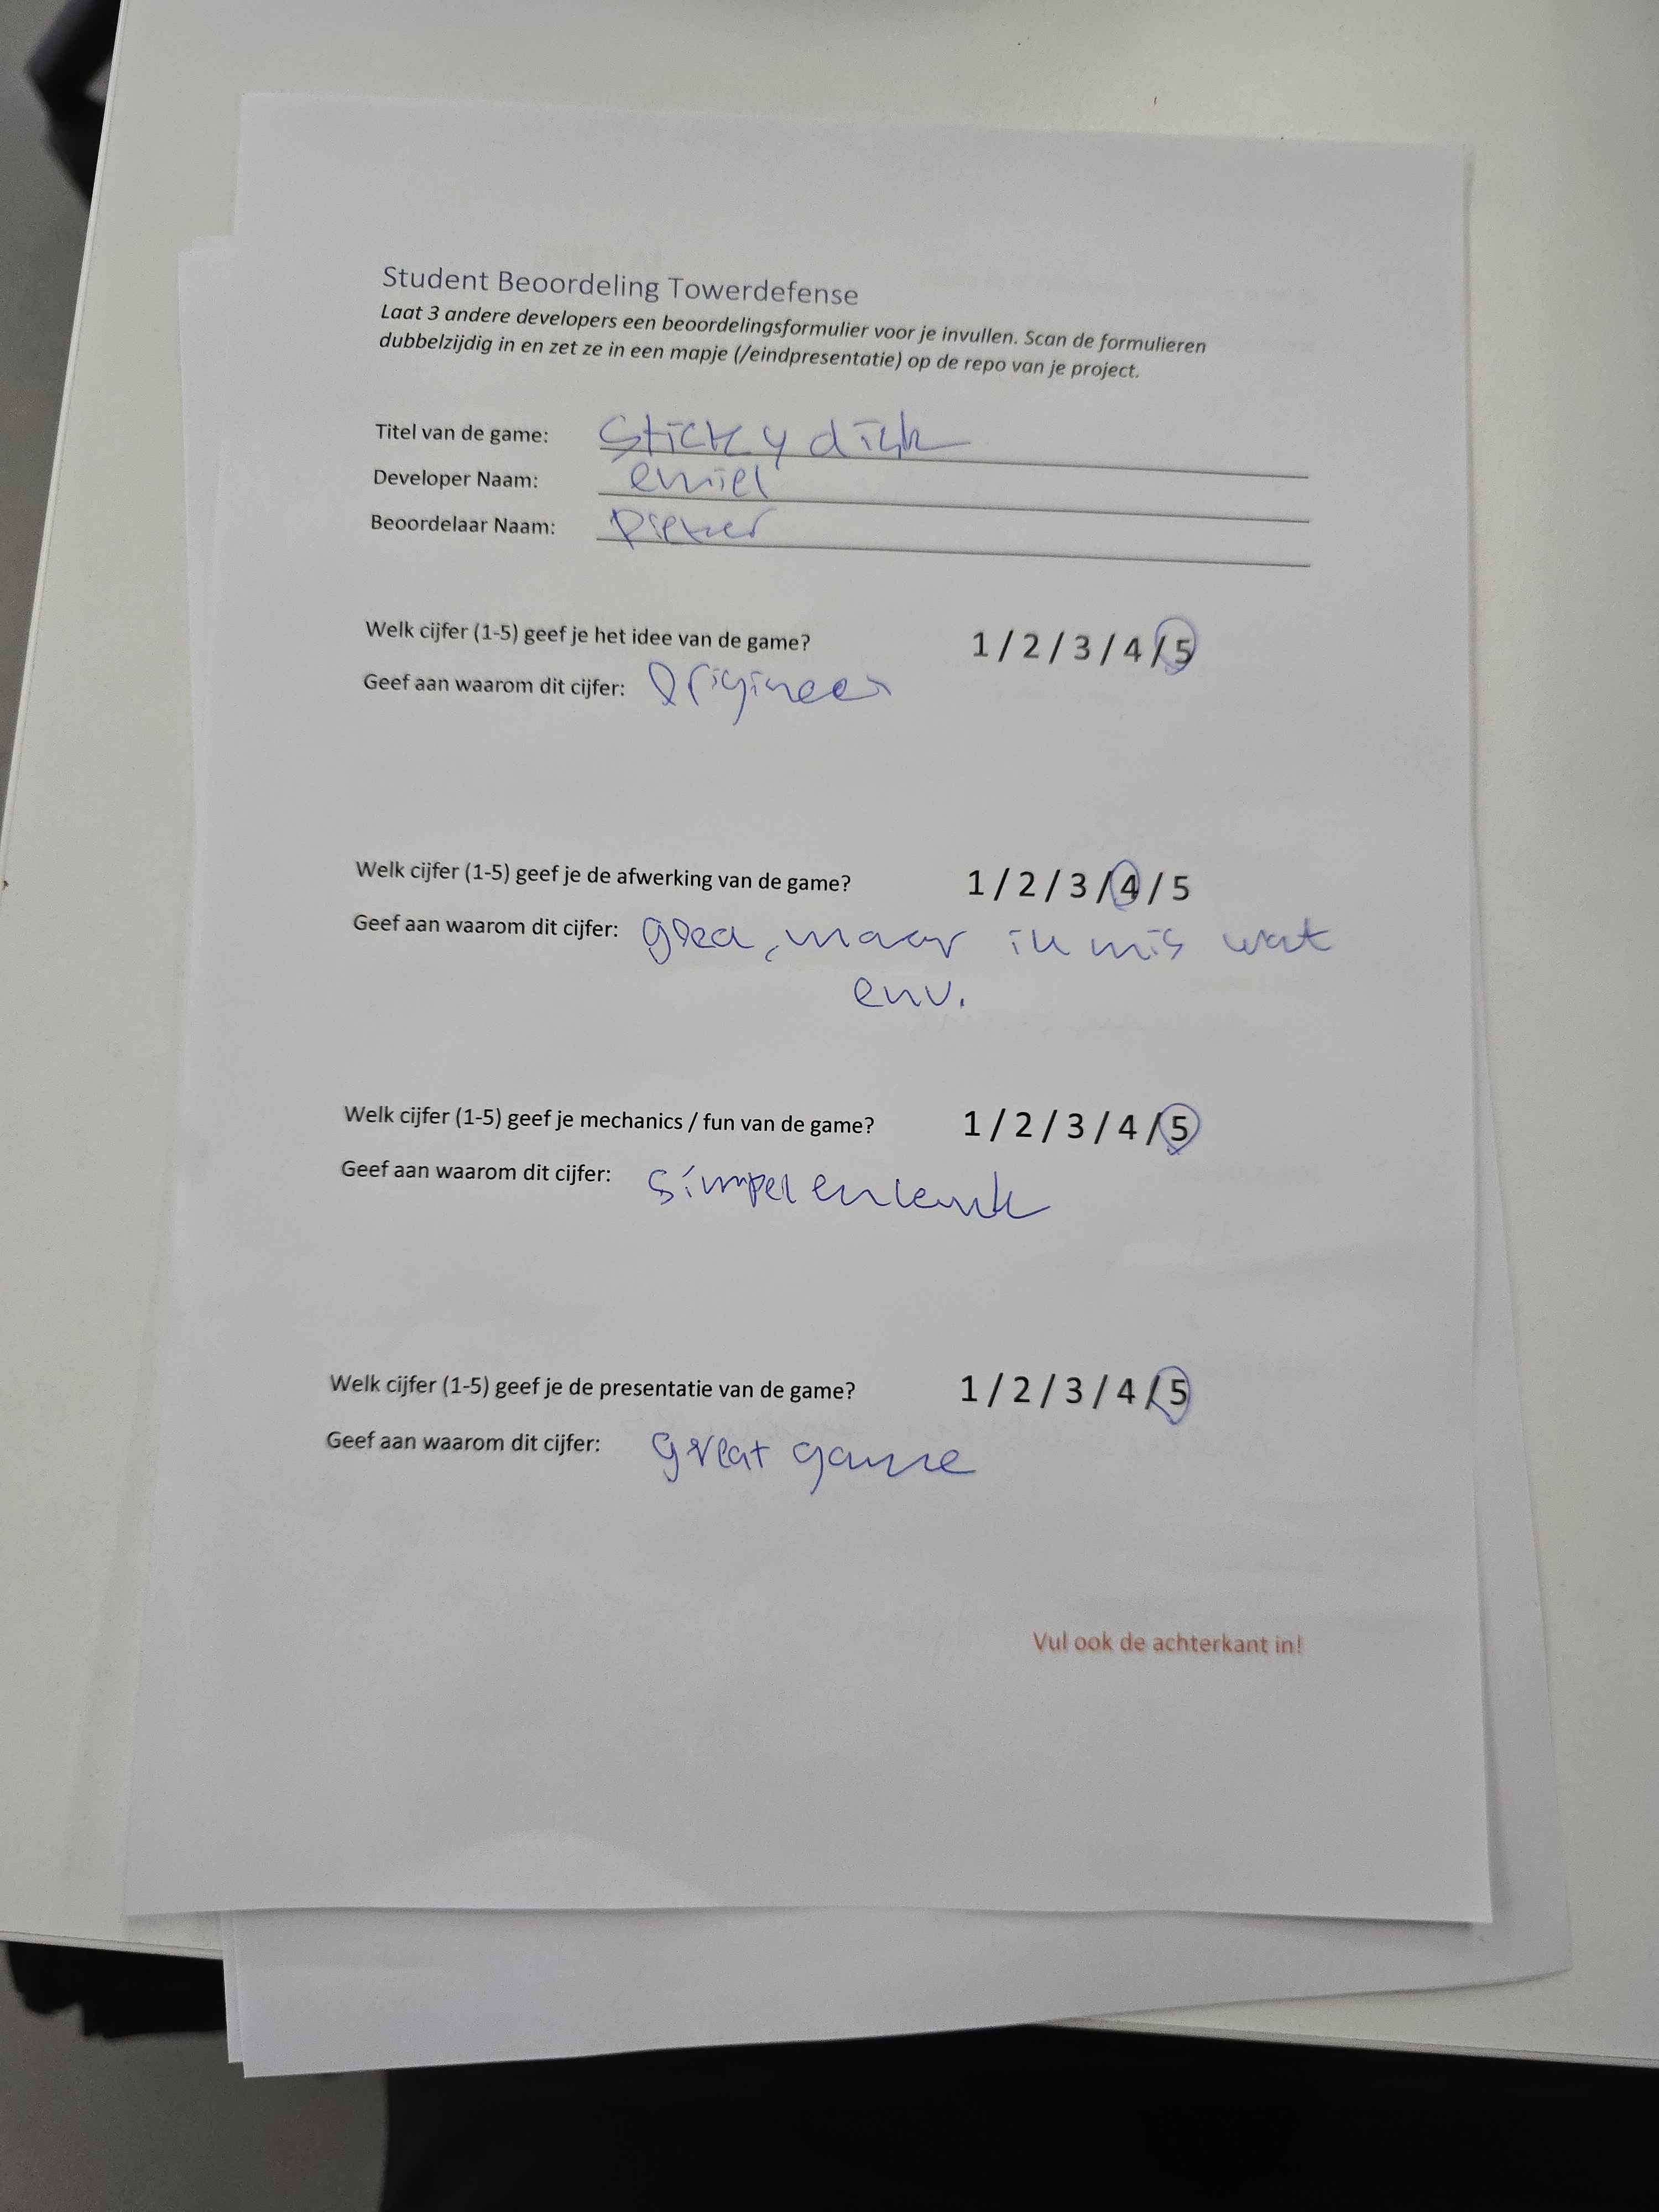 Student Beoordeling Towerdefense
Laat 3 andere developers een beoordelingsformulier voor je invullen. Scan de formulieren
dubbelzijdig in en zet ze in een mapje (/eindpresentatie) op de repo van je project.
Titel van de game: Sticky dick
Developer Naam: emiel
Beoordelaar Naam: Pieter
Welk cijfer (1-5) geef je het idee van de game? 1 / 2 / 3 / 4 / 5
Geef aan waarom dit cijfer: Origineel
Welk cijfer (1-5) geef je de afwerking van de game? 1 / 2 / 3 / 4 / 5
Geef aan waarom dit cijfer: goed, maar ik mis wat
env.
Welk cijfer (1-5) geef je mechanics / fun van de game? 1 / 2 / 3 / 4 / 5
Geef aan waarom dit cijfer: simpel en leuk
Welk cijfer (1-5) geef je de presentatie van de game? 1 / 2 / 3 / 4 / 5
Geef aan waarom dit cijfer: great game
Vul ook de achterkant in!